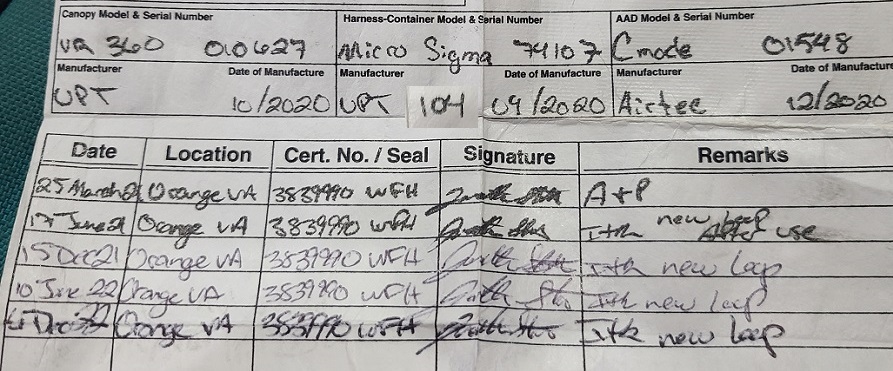 Canopy Model & Serial Number Harness-Container Model & Serial Number AAD Model & Serial Number
VR 360 010627 Micro Sigma 74107 Cmode 01548
Manufacturer Date of Manufacture Manufacturer Date of Manufacture Manufacturer Date of Manufacture
UPT 10/2020 UPT 104 09/2020 Airtec 12/2020
Date Location Cert. No. / Seal Signature Remarks
25 March 21 Orange VA 3839990 WFH A+P
17 June 21 Orange VA 3839990 WFH I+R new loop
After use
15 Dec 21 Orange VA 3839990 WFH I+R new loop
10 June 22 Orange VA 3839990 WFH I+R new loop
Dec 22 Orange VA 3839990 WFH I+R new loop